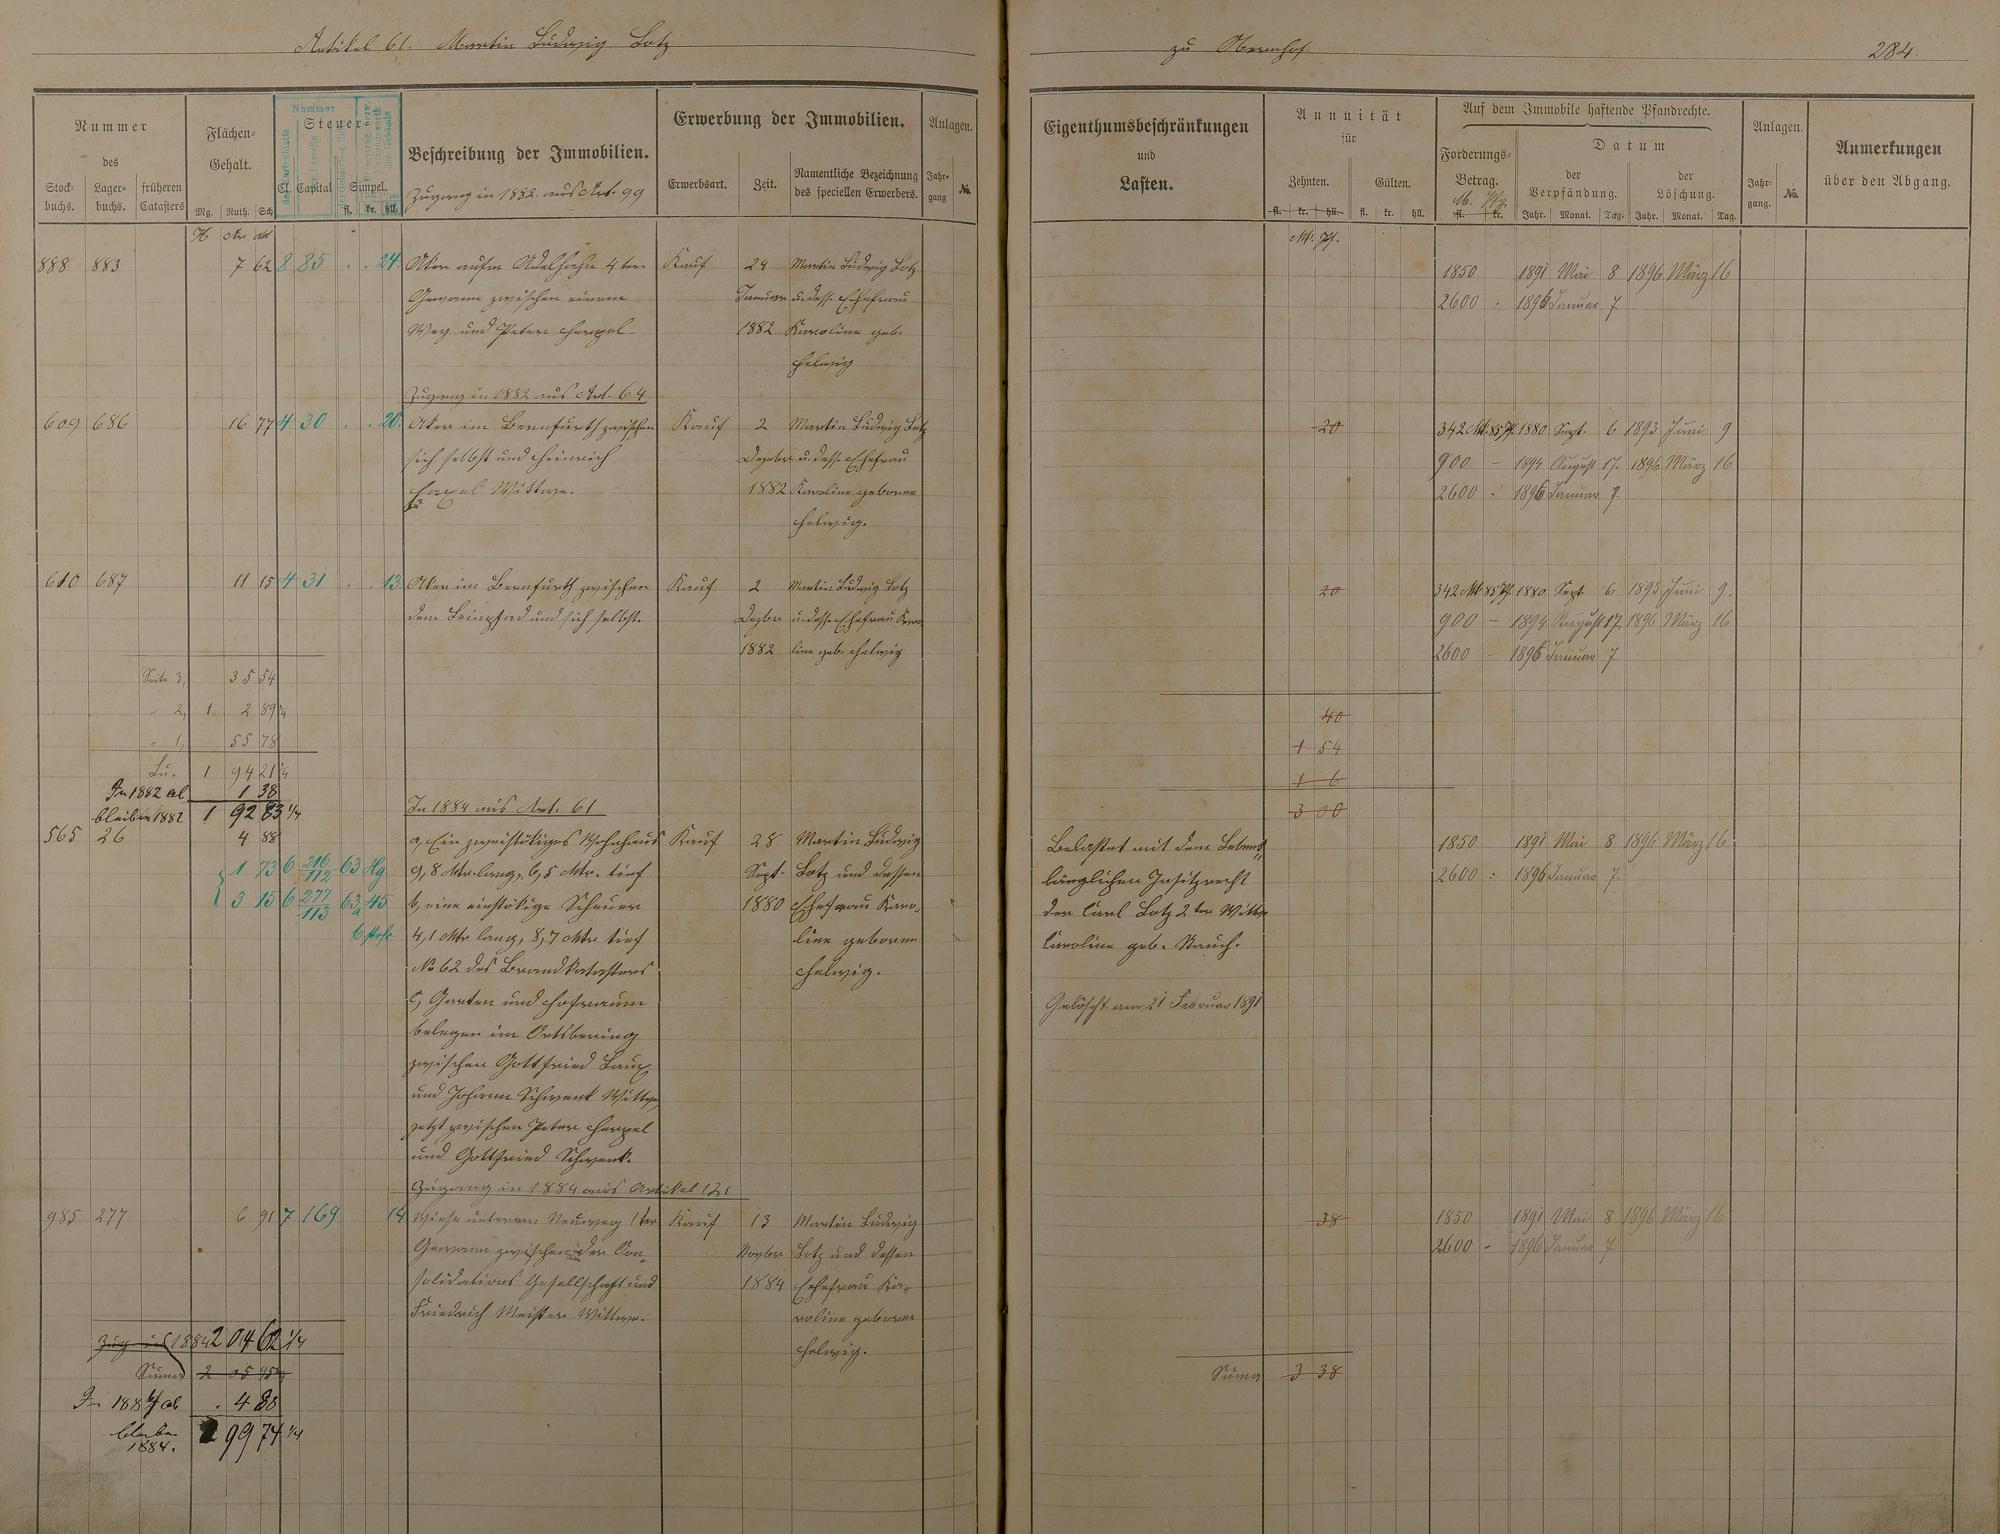 Artikel 61. Martin Ludwig Lotz
zu Obernhof.
284.
Nummer
des
Stock-
buchs.
Lager-
buchs.
früheren
Catasters
Flächen-
Gehalt.
Mg. Ruth. Sch
Nummer
Steuer-
Cl. Capital Simpel.
fl. kr. hll.
Beschreibung der Immobilien.
Zugang in 1882 aus Art. 99
Erwerbung der Immobilien.
Erwerbsart. Zeit.
Namentliche Bezeichnung
des speciellen Erwerbers.
Anlagen.
Jahr-
gang
No.
Eigenthumsbeschränkungen
und
Lasten.
Annuität
für
Zehnten. Gülten.
fl. kr. hll. fl. kr. hll.
Mk. Pf.
Auf dem Immobile haftende Pfandrechte.
Forderungs-
Betrag.
M. Pfg
fl. kr.
Datum
der
Verpfändung.
Jahr. Monat. Tag.
der
Löschung.
Jahr. Monat. Tag.
Anlagen.
Jahr-
gang. No.
Anmerkungen
über den Abgang.
H Ar M
888 883 7 62 8 85 . . 24. Aker aufm Adelhahn 4ter Kauf 24 Martin Ludwig Lotz
Gewann zwischen einem Januar u. dess. Ehefrau
Weg und Peter Herpel. 1882 Karoline geb.
Helwig
1850 1891 Mai 8 1896 März 16
2600 - 1896 Januar 7
Zugang in 1882 aus Art. 64
609 686 16 77 4 30 . . 20. Aker im Bernfurth zwischen Kauf 2 Martin Ludwig Lotz
sich selbst und Heinrich Dezbr u. dess. Ehefrau
Wittwe. 1882 Karoline geborne
Helwig.
20 342 Mk. 85 Pf. 1880 Sept. 6 1893 Juni 9
900 - 1894 August 17. 1896 März 16
2600 - 1896 Januar 7
610 687 11 15 4 31 . . 13. Aker im Bernfurth zwischen Kauf 2 Martin Ludwig Lotz
dem Leinpfad und sich selbst. Dezbr u. dess. Ehefrau Karo
1882 line geb. Helwig
20 342 Mk. 85 Pf. 1880 Sept 6 1893 Juni 9.
900 - 1894 August 17. 1896 März 16
2600 - 1896 Januar 7
Seite 3, 35 54
" 2, 1 2 89 1/4
" 1, 55 78
Su. 1 94 21 1/4
In 1882 ab 1 38
bleiben 1882 1 92 83 1/4
40
1 54
1 6
3 00
In 1884 aus Art. 61
565 26 4 88 a, Ein zweistökiges Wohnhaus Kauf 28 Martin Ludwig
1 73 6 216/112 63 Hg 9,8 Mtr. lang, 6,5 Mtr. tief Sept. Lotz und dessen
3 15 6 277/113 63a 45 b, eine einstökige Scheuer 1880 Ehefrau Karo-
4,1 Mtr lang, 8,7 Mtr tief line geborne
No 62 des Brandkatasters Helwig.
c, Garten und Hofraum
belegen im Ortsbering
zwischen Gottfried Laux
und Johann Schwenk Wittwe,
jetzt zwischen Peter Herpel
und Gottfried Schwenk.
Belastet mit dem Lebens-
länglichen Insitzrecht
der Carl Lotz 2ter Wittwe
Caroline geb. Rauch.
Gelöscht am 21 Februar 1891
1850 1891 Mai 8 1896 März 16
2600 - 1896 Januar 7
Zugang in 1884 aus Artikel 121
985 277 6 91 7 169 14 Wiese unterem Neuweg 1ter Kauf 13 Martin Ludwig
Gewann zwischen der Con- Novbr Lotz und dessen
solidations Gesellschaft und 1884 Ehefrau Ka-
Friedrich Meister Wittwe. roline geborne
Helwig.
38 1850 1891 Mai 8 1896 März 16
2600 - 1896 Januar 7
1884 2 04 62 1/4
Suma 2 05
In 1884 ab . 4 88
bleiben 1 99 74 1/4
1884.
Suma 3 38